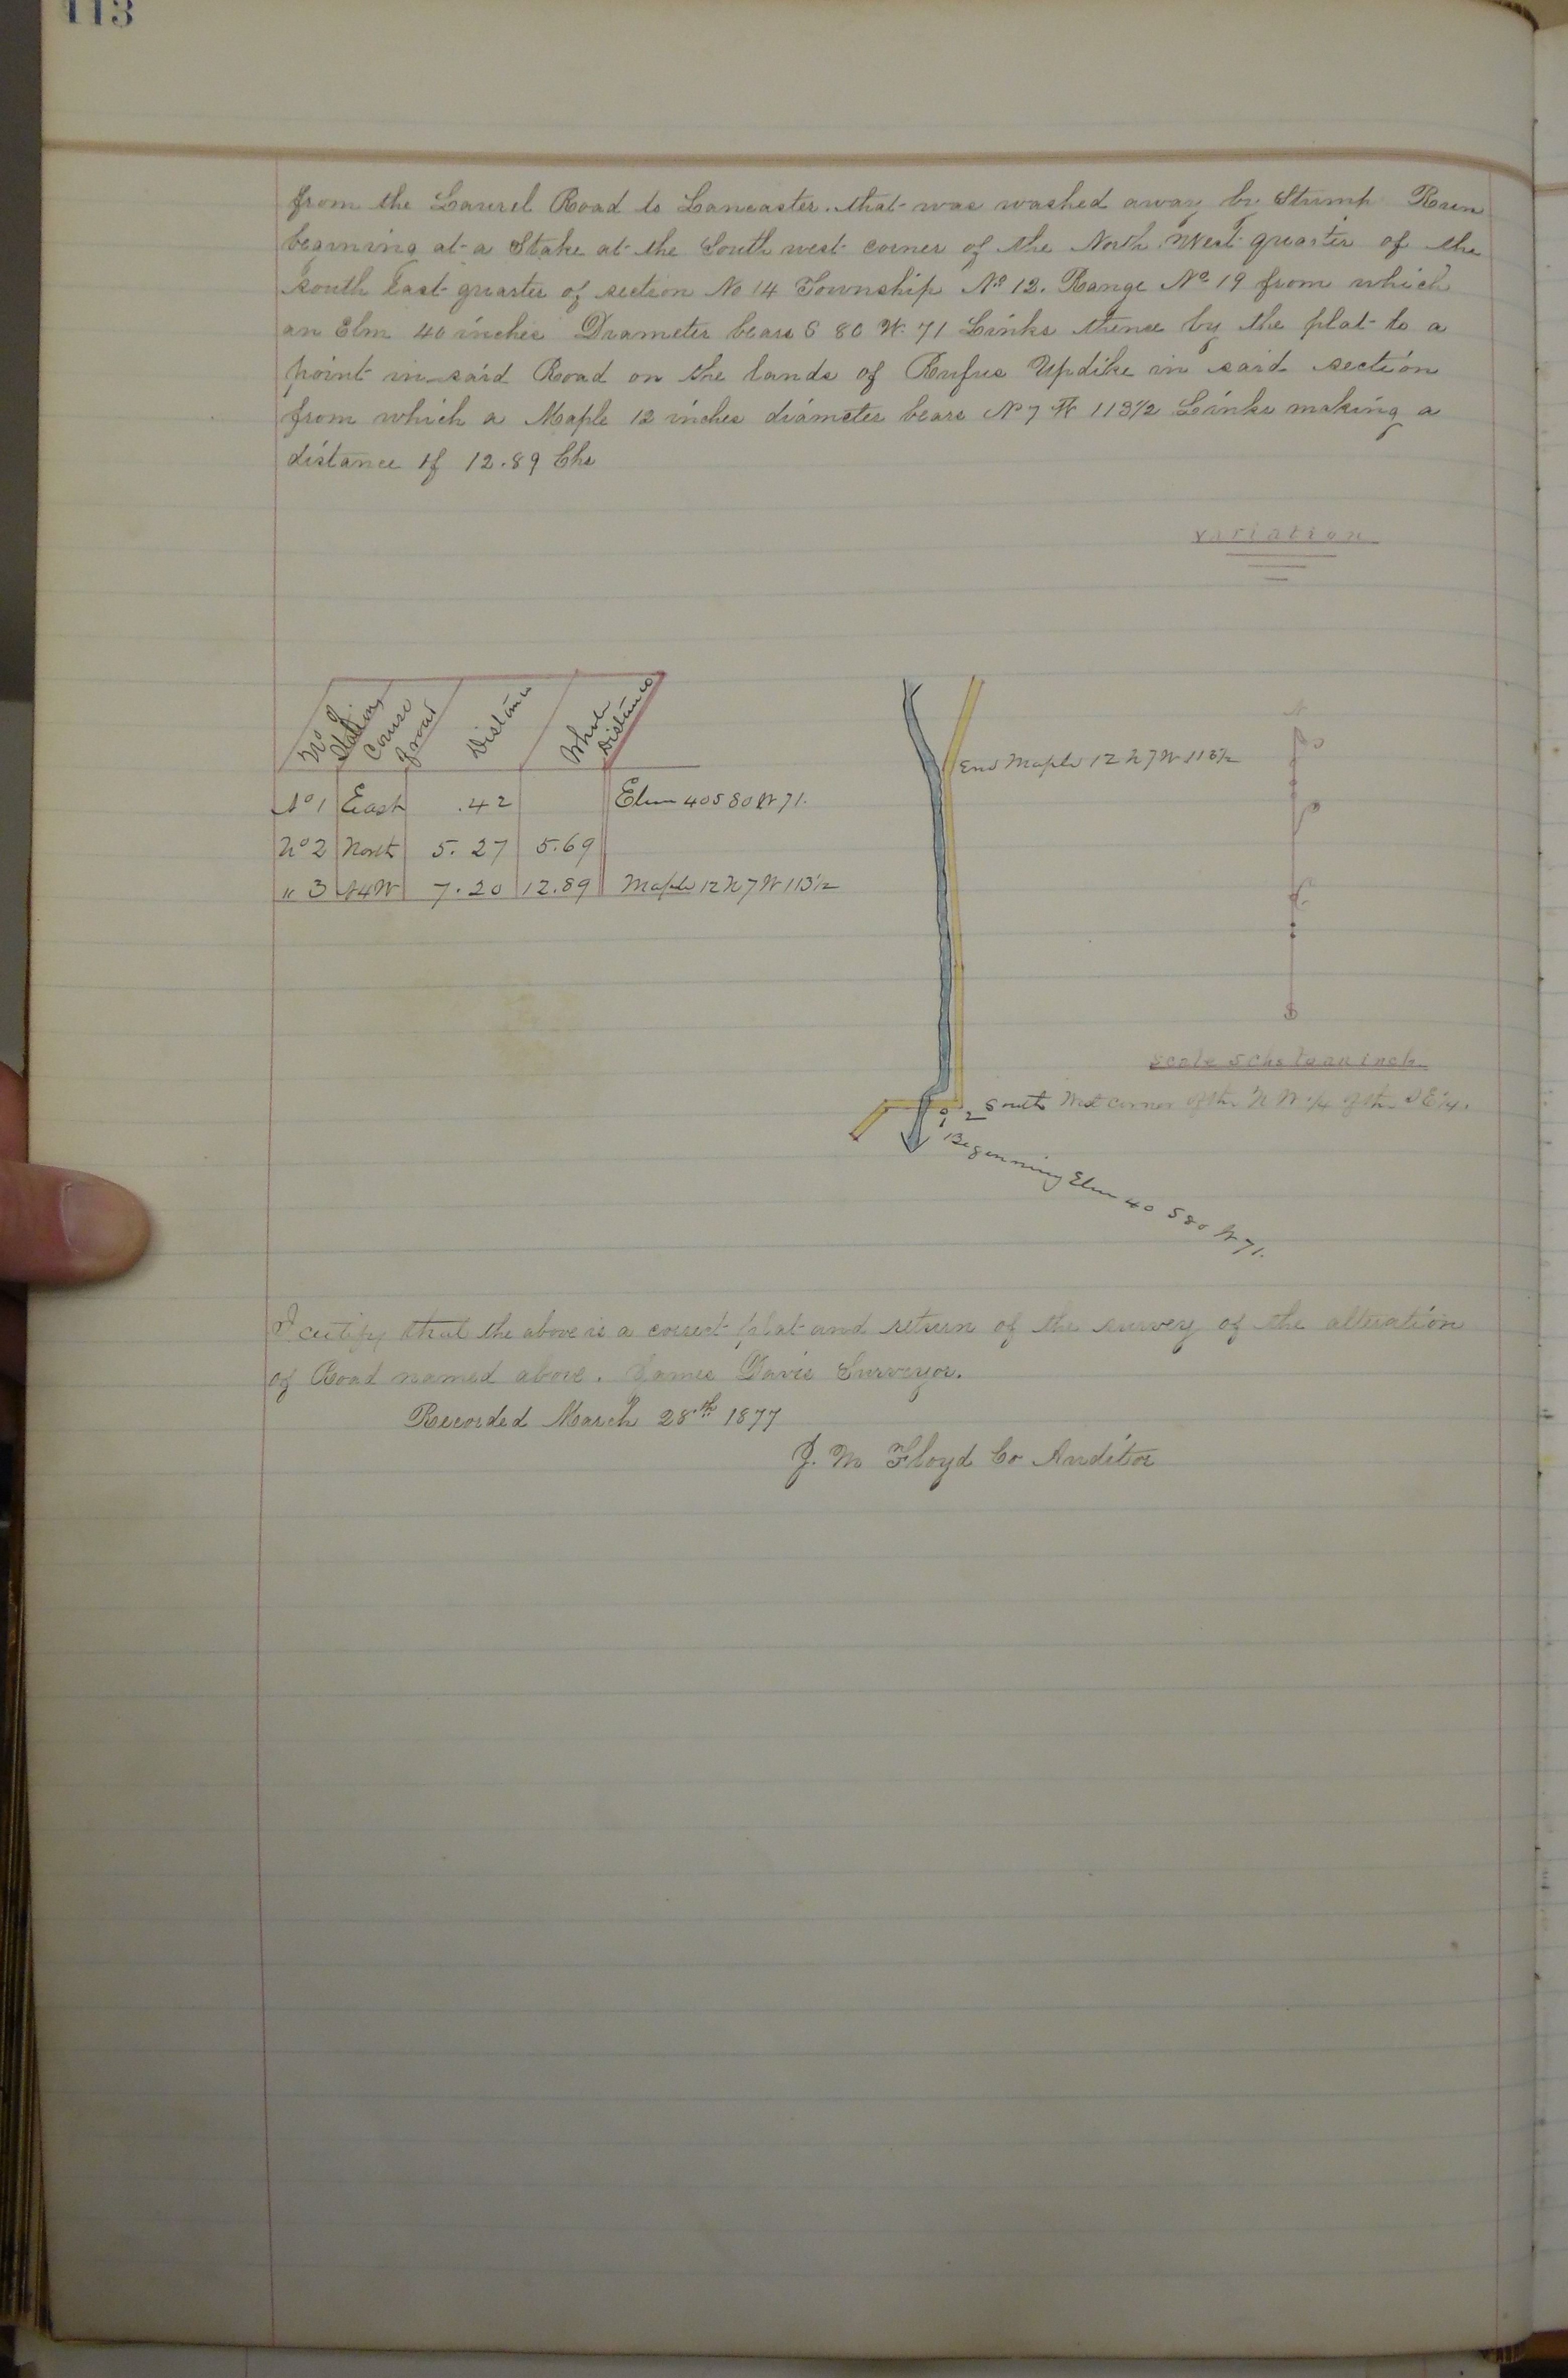 113
from the Laurel Road to Lancaster. that was washed away by Stump Run
begining at a Stake at the South west corner of the North West quarter of the
south East quarter of section No 14 Township No 12. Range No 19 from which
an Elm 40 inches Diameter bears S 80 W. 71 Links thence by the plat to a
point in said Road on the lands of Rufus Updike in said section
from which a Maple 12 inches diameter bears N 7 W 113½ Links making a
distance of 12.89 Chs
variation
No of Station
Course of road
Distance
Whole Distance
No 1 East .42 Elm 40 S 80 W 71.
No 2 North 5.27 5.69
" 3 N4W 7.20 12.89 Maple 12 N 7 W 113½
End Maple 12 N 7 W 113½
S
Scale 5 chs to an inch
1 2 South West corner of the N W ¼ of the S E ¼.
Beginning Elm 40 S 80 W 71.
I certify that the above is a correct plat and return of the survey of the alteration
of Road named above. James Davis Surveyor.
Recorded March 28th 1877
J. M Floyd Co Auditor